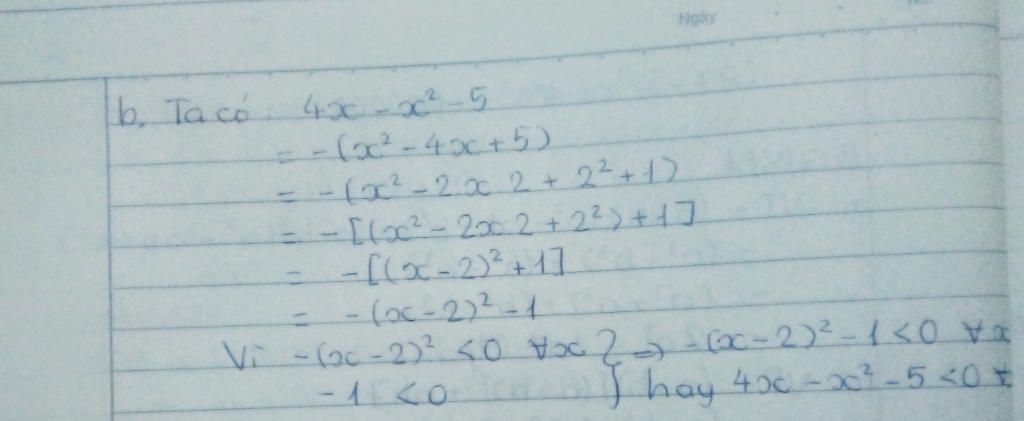 Ngày
b. Ta có: 4x - x² - 5
= -(x² - 4x + 5)
= -(x² - 2.x.2 + 2² + 1)
= -[(x² - 2x.2 + 2²) + 1]
= -[(x - 2)² + 1]
= -(x - 2)² - 1
Vì -(x - 2)² < 0 ∀x } ⇒ -(x - 2)² - 1 < 0 ∀x
-1 < 0 } hay 4x - x² - 5 < 0